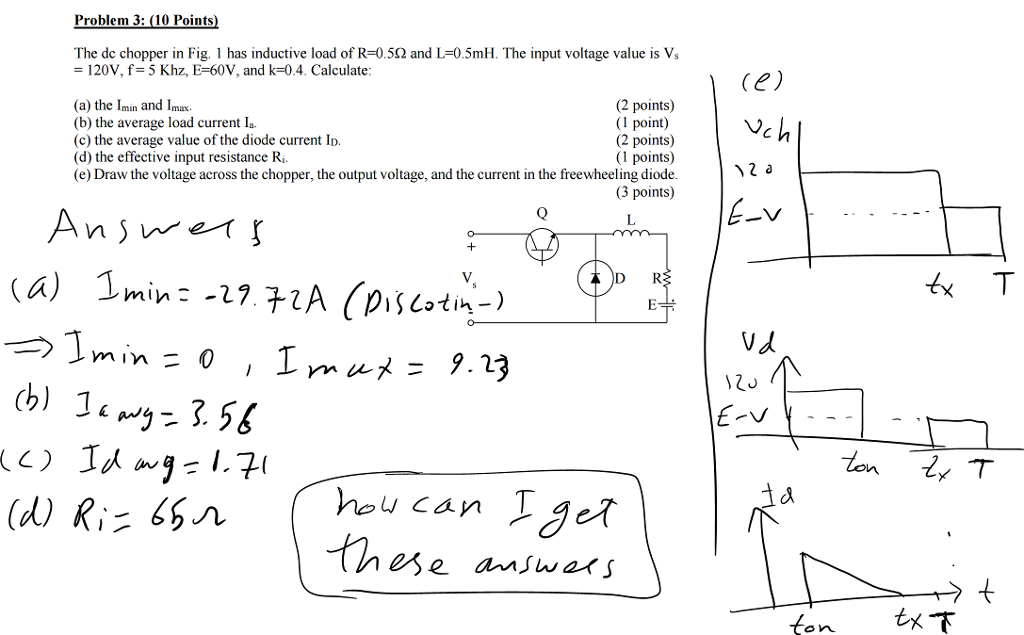 Problem 3: (10 Points)
The dc chopper in Fig. 1 has inductive load of R=0.5Ω and L=0.5mH. The input voltage value is Vs
= 120V, f = 5 Khz, E=60V, and k=0.4. Calculate:
(a) the Imin and Imax. (2 points)
(b) the average load current Ia. (1 point)
(c) the average value of the diode current ID. (2 points)
(d) the effective input resistance Ri. (1 points)
(e) Draw the voltage across the chopper, the output voltage, and the current in the freewheeling diode.
(3 points)
Answers
Q
L
+
Vs
D
R
E
(a) Imin = -29.72A (Discotin-)
⇒ Imin = 0, Imax = 9.23
(b) Ia avg = 3.56
(c) Id avg = 1.71
(d) Ri = 65Ω
how can I get
these answers
(e)
Vch
120
E-V
tx T
Vd
120
E-V
ton tx T
Id
t
ton tx T